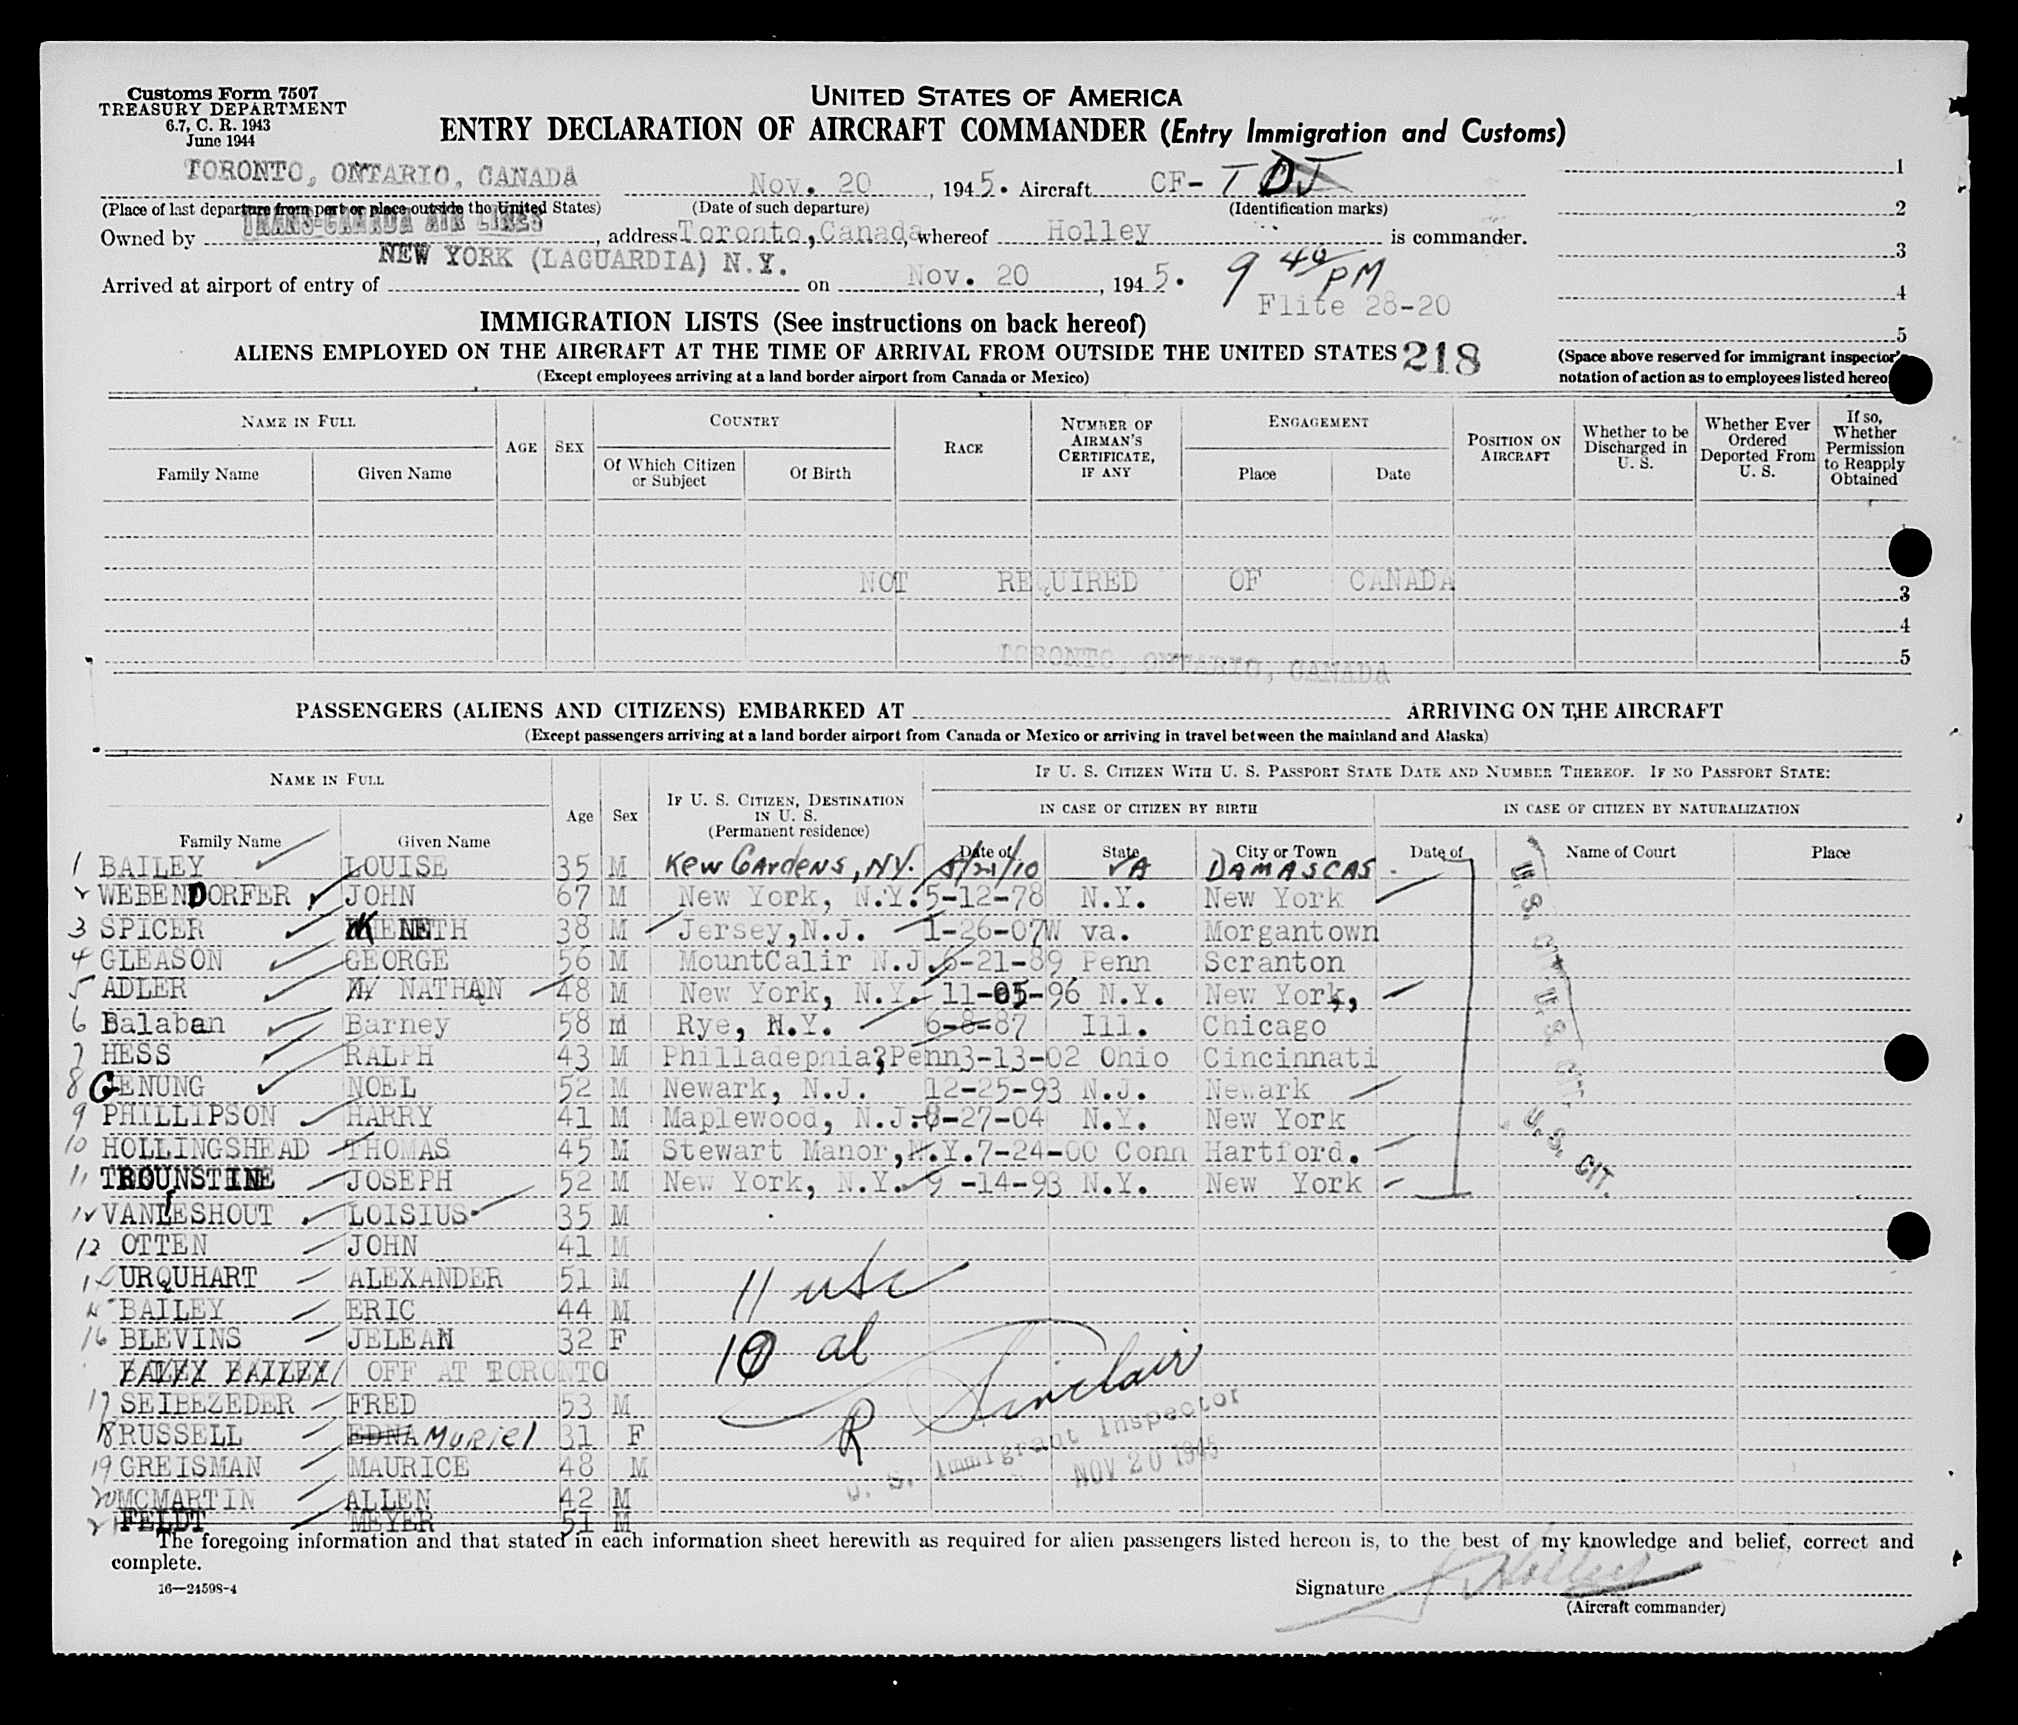 Customs Form 7507
TREASURY DEPARTMENT
6.7, C. R. 1943
June 1944
UNITED STATES OF AMERICA
ENTRY DECLARATION OF AIRCRAFT COMMANDER (Entry Immigration and Customs)
TORONTO, ONTARIO, CANADA Nov. 20, 1945. Aircraft CF-T
(Place of last departure from port or place outside the United States) (Date of such departure) (Identification marks)
Owned by TRANS-CANADA AIR LINES, address Toronto, Canada, whereof Holley is commander.
NEW YORK (LAGUARDIA) N.Y.
Arrived at airport of entry of on Nov. 20, 1945. 9 40 PM
Flite 28-20
1
2
3
4
5
(Space above reserved for immigrant inspector's
notation of action as to employees listed hereo
IMMIGRATION LISTS (See instructions on back hereof)
ALIENS EMPLOYED ON THE AIRCRAFT AT THE TIME OF ARRIVAL FROM OUTSIDE THE UNITED STATES 218
(Except employees arriving at a land border airport from Canada or Mexico)
NAME IN FULL AGE SEX COUNTRY RACE NUMBER OF AIRMAN'S CERTIFICATE, IF ANY ENGAGEMENT POSITION ON AIRCRAFT Whether to be Discharged in U. S. Whether Ever Ordered Deported From U. S. If so, Whether Permission to Reapply Obtained
Family Name Given Name Of Which Citizen or Subject Of Birth Place Date
NOT REQUIRED OF CANADA
3
4
5
TORONTO, ONTARIO, CANADA
PASSENGERS (ALIENS AND CITIZENS) EMBARKED AT ARRIVING ON THE AIRCRAFT
(Except passengers arriving at a land border airport from Canada or Mexico or arriving in travel between the mainland and Alaska)
NAME IN FULL Age Sex IF U. S. CITIZEN, DESTINATION IN U. S. (Permanent residence) IF U. S. CITIZEN WITH U. S. PASSPORT STATE DATE AND NUMBER THEREOF. IF NO PASSPORT STATE:
IN CASE OF CITIZEN BY BIRTH IN CASE OF CITIZEN BY NATURALIZATION
Family Name Given Name Date of State City or Town Date of Name of Court Place
1 BAILEY LOUISE 35 M Kew GARdeNS, NY. 5/21/10 VA DAMASCAS
2 WEBENDORFER JOHN 67 M New York, N.Y. 5-12-78 N.Y. New York
3 SPICER KENETH 38 M Jersey, N.J. 1-26-07 W va. Morgantown
4 GLEASON GEORGE 56 M MountCalir N.J. 6-21-89 Penn Scranton
5 ADLER NATHAN 48 M New York, N.Y. 11-05-96 N.Y. New York,
6 Balaban Barney 58 m Rye, N.Y. 6-8-87 Ill. Chicago
7 HESS RALPH 43 M Philladepnia,Penn 3-13-02 Ohio Cincinnati
8 GENUNG NOEL 52 M Newark, N.J. 12-25-93 N.J. Newark
9 PHILLIPSON HARRY 41 M Maplewood, N.J. 8-27-04 N.Y. New York
10 HOLLINGSHEAD THOMAS 45 M Stewart Manor, N.Y. 7-24-00 Conn Hartford.
11 TROUNSTINE JOSEPH 52 M New York, N.Y. 9 -14-93 N.Y. New York
12 VANLESHOUT LOISIUS 35 M
13 OTTEN JOHN 41 M
14 URQUHART ALEXANDER 51 M
15 BAILEY ERIC 44 M
16 BLEVINS JELEAN 32 F
BAILEY OFF AT TORONTO
17 SEIBEZEDER FRED 53 M
18 RUSSELL EDNA MURiel 31 F
19 GREISMAN MAURICE 48 M
20 MCMARTIN ALLEN 42 M
21 FELDT MEYER 51 M
U. S. CIT.
U. S. CIT.
U. S. CIT.
11 usc
10 al
R Sinclair
U. S. Immigrant Inspector
NOV 20 1945
The foregoing information and that stated in each information sheet herewith as required for alien passengers listed hereon is, to the best of my knowledge and belief, correct and
complete.
16—24598-4
Signature Holley
(Aircraft commander)